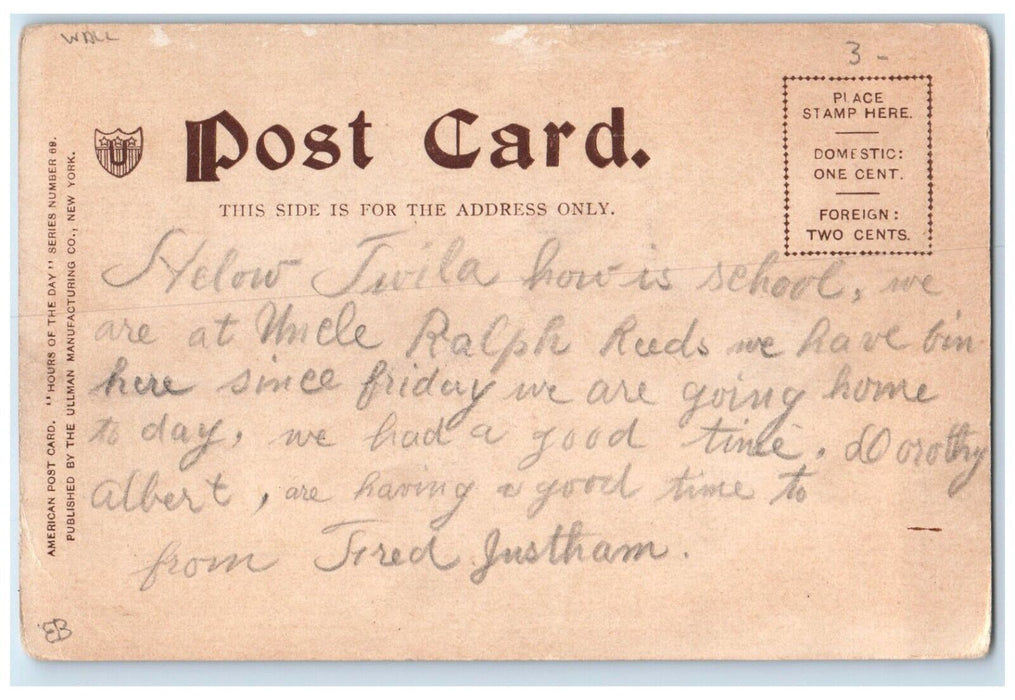 WDCC
3 -
Post Card.
THIS SIDE IS FOR THE ADDRESS ONLY.
PLACE
STAMP HERE.
DOMESTIC:
ONE CENT.
FOREIGN:
TWO CENTS.
U
AMERICAN POST CARD. "HOURS OF THE DAY" SERIES NUMBER 69.
PUBLISHED BY THE ULLMAN MANUFACTURING CO., NEW YORK.
Helow Twila how is school, we
are at Uncle Ralph Reeds we have bin
here since friday we are going home
to day, we had a good time. Dorothy
Albert, are having a good time to
from Fred Justham.
EB